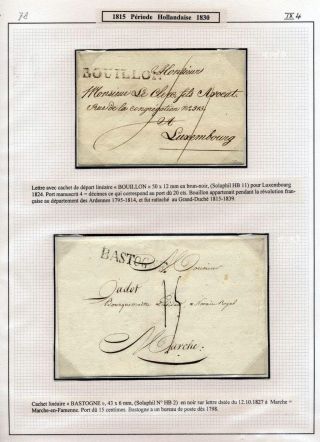 78
1815 Période Hollandaise 1830
IX 4
BOUILLON Monsieur
Monsieur Le Clerc fils Avocat
Rue de la congregation N° 312
à
Luxembourg
Lettre avec cachet de départ linéaire « BOUILLON » 50 x 12 mm en brun-noir, (Solaphil HB 11) pour Luxembourg
1824. Port manuscrit 4 = décimes ce qui correspond au port dû 20 cts. Bouillon appartenait pendant la révolution fran-
çaise au département des Ardennes 1795-1814, et fut rattaché au Grand-Duché 1815-1839.
BASTOGNE
Monsieur
Jadot
Bourguemaître Notaire Royal
15
Marche
Cachet linéaire « BASTOGNE », 43 x 6 mm, (Solaphil N° HB 2) en noir sur lettre datée du 12.10.1827 à Marche =
Marche-en-Famenne. Port dû 15 centimes. Bastogne a un bureau de poste dès 1798.